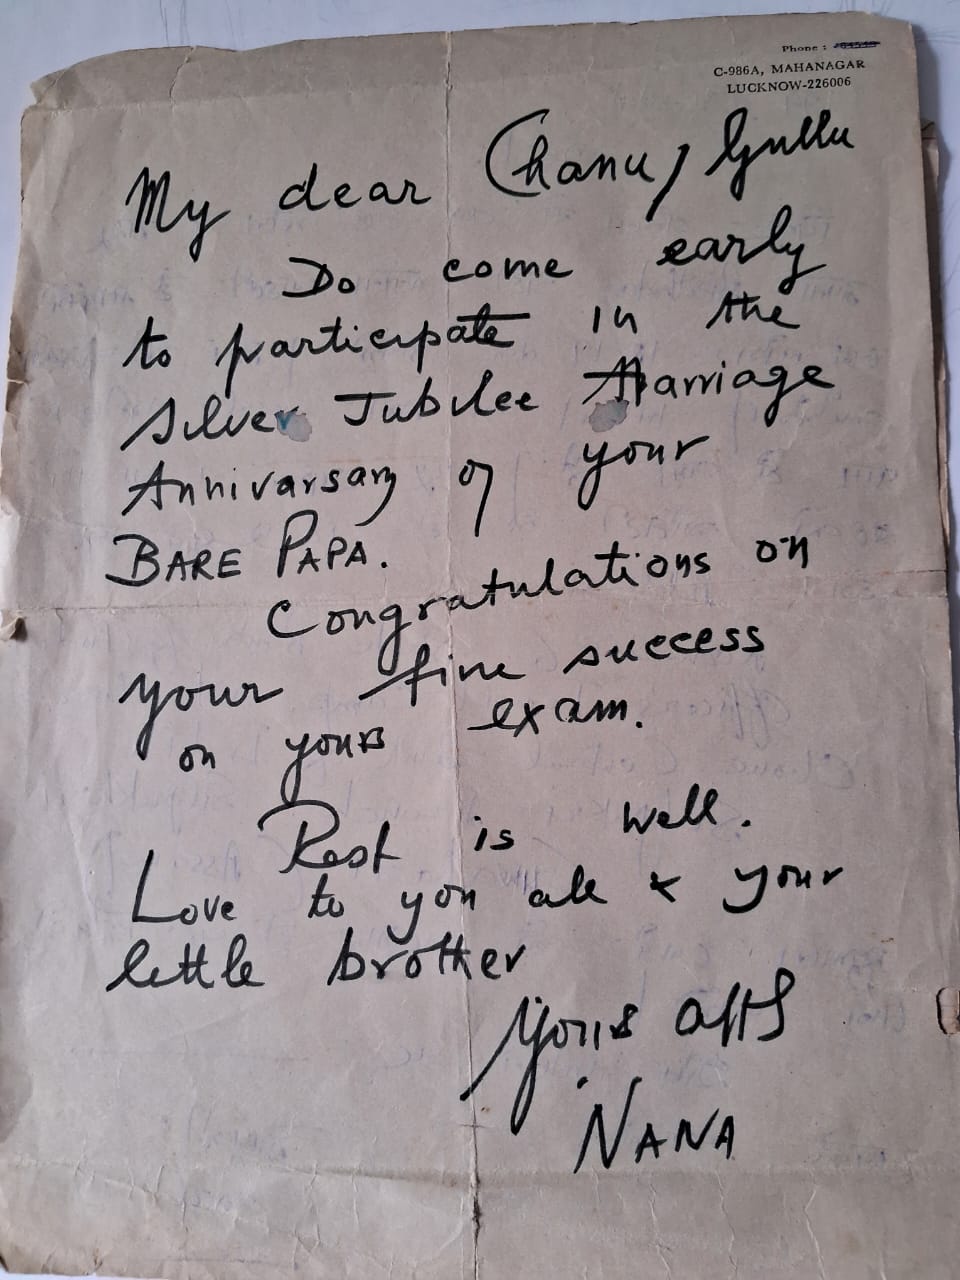 Phone :
C-986A, MAHANAGAR
LUCKNOW-226006
My dear Chanu / Gullu
Do come early
to participate in the
Silver Jubilee Marriage
Annivarsary of your
BARE PAPA.
Congratulations on
your fine success
on yours exam.
Rest is well.
Love to you all & your
little brother
Yours affly
NANA